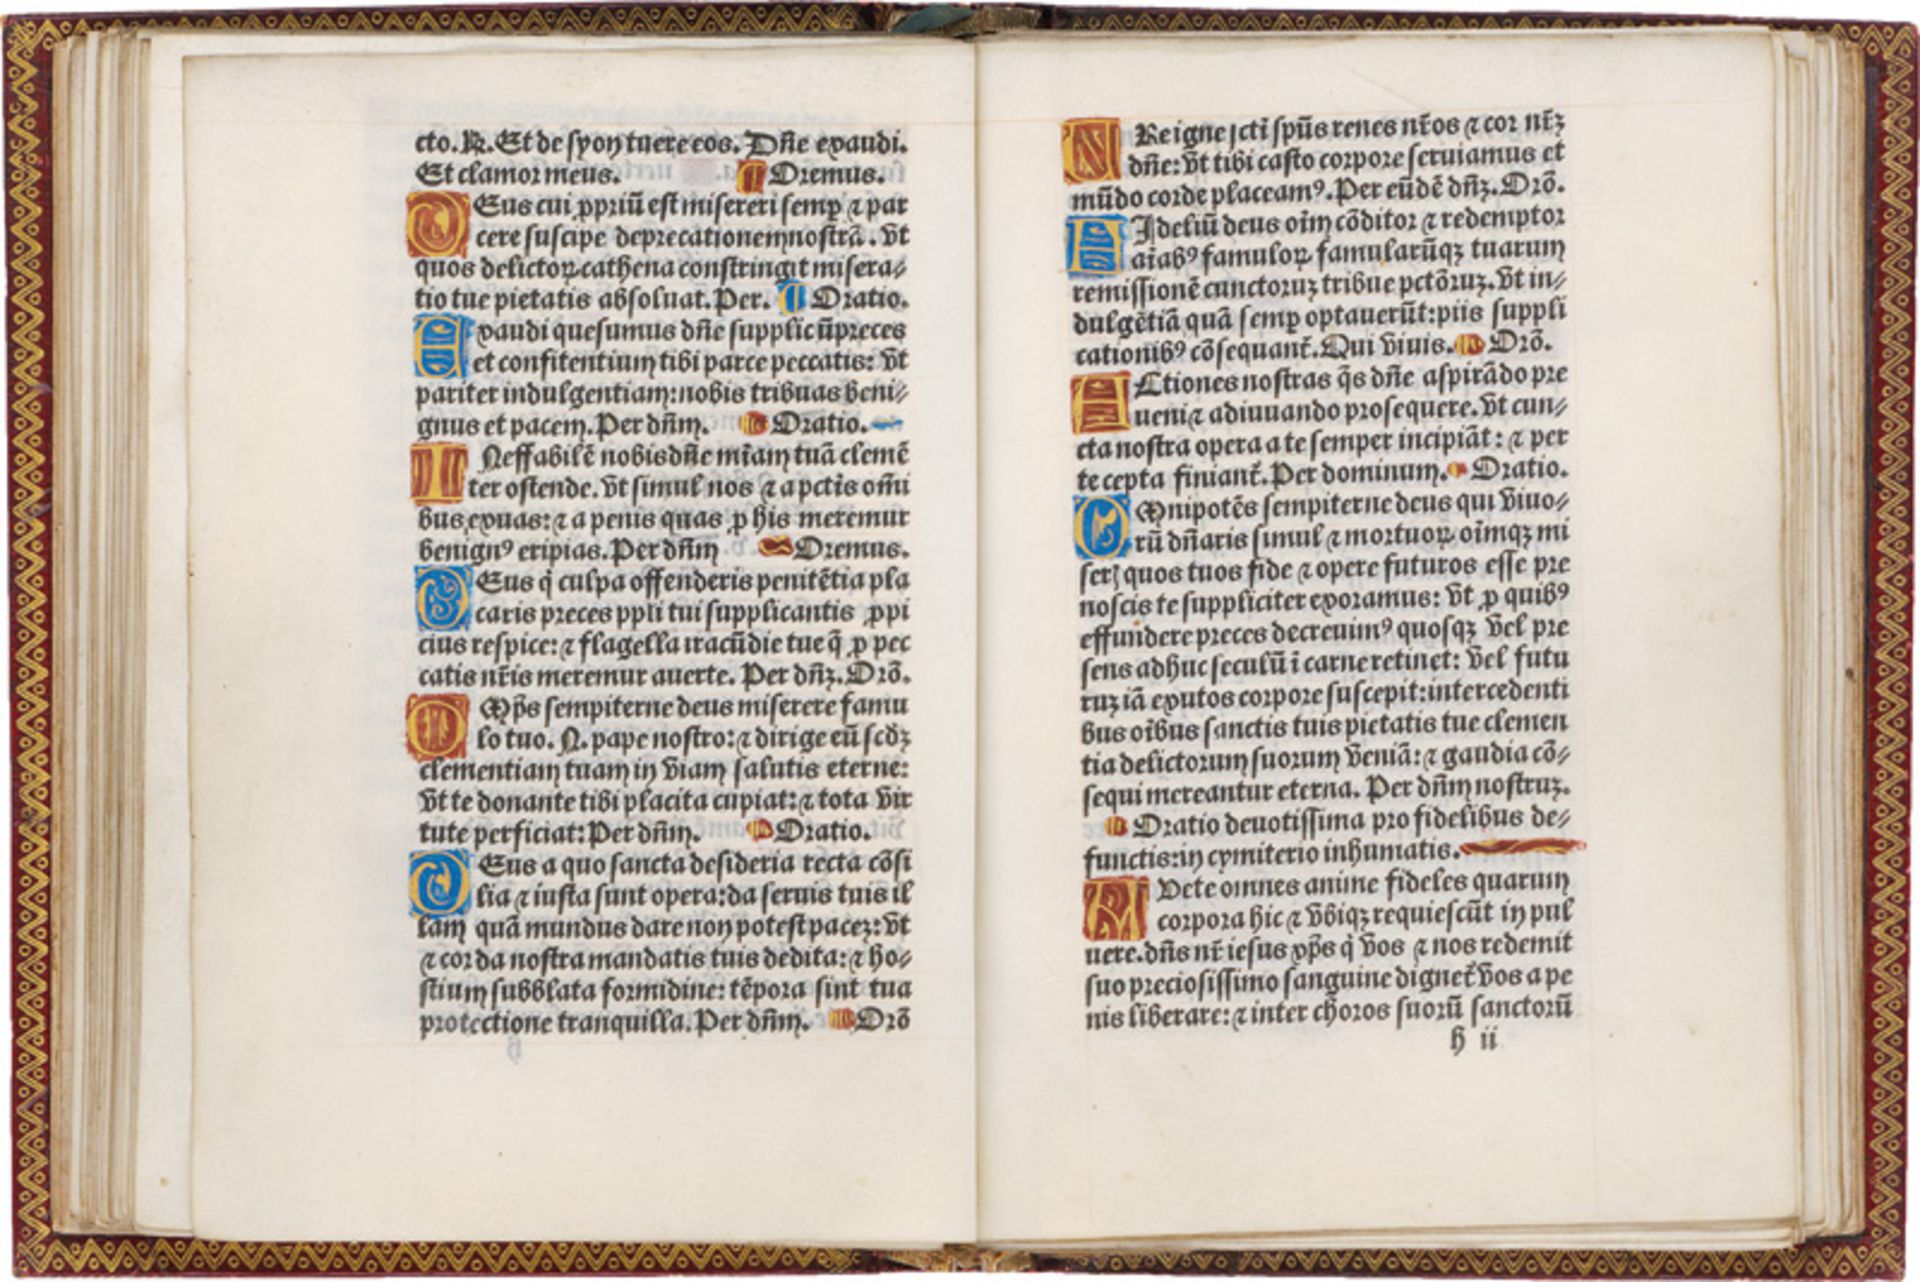 cto. R. Et de syon tuere eos. Dñe exaudi.
Et clamor meus. Oremus.
DEus cui ꝓpriũ est misereri semꝑ ⁊ par
cere suscipe deprecationem nostrã. Vt
quos delictoꝝ cathena constringit misera⸗
tio tue pietatis absoluat. Per. Oratio.
Exaudi quesumus dñe supplicũ preces
et confitentium tibi parce peccatis: Vt
pariter indulgentiam: nobis tribuas beni⸗
gnus et pacem. Per dñm. Oratio.
INeffabilẽ nobis dñe mĩam tuã clemẽ
ter ostende. Vt simul nos ⁊ a pctĩs om̃i
bus exuas: ⁊ a penis quas ꝓ his meremur
benignꝰ eripias. Per dñm Oremus.
DEus q̃ culpa offenderis penitẽtia pla
caris preces ppl̃i tui supplicantis ꝓpi
cius respice: ⁊ flagella iracũdie tue q̃ ꝓ pec
catis nr̃is meremur auerte. Per dñꝫ. Orõ.
OMp̃s sempiterne deus miserere famu
lo tuo. N. pape nostro: ⁊ dirige eũ scd̃ꝫ
clementiam tuam in viam salutis eterne:
Vt te donante tibi placita cupiat: ⁊ tota vir
tute perficiat: Per dñm. Oratio.
DEus a quo sancta desideria recta cõsi
lia ⁊ iusta sunt opera: da seruis tuis il
lam quã mundus dare non potest paceꝫ: Vt
⁊ corda nostra mandatis tuis dedita: ⁊ ho⸗
stium subblata formidine: tẽpora sint tua
protectione tranquilla. Per dñm. Orõ
VRe igne scti sp̃us renes nr̃os ⁊ cor nr̃ꝫ
dñe: Vt tibi casto corpore seruiamus et
mũdo corde placeamꝰ. Per eũdẽ dñꝫ. Orõ.
FIdeliũ deus oĩm cõditor ⁊ redemptor
aĩabꝰ famuloꝝ famularũqꝫ tuarum
remissionẽ cunctoruꝫ tribue pctõruꝫ. Vt in⸗
dulgẽtiã quã semꝑ optauerũt: piis suppli
cationibꝰ cõsequant̃. Qui viuis. Orõ.
ACtiones nostras q̃s dñe aspirãdo pre
ueni ⁊ adiuuando prosequere. Vt cun⸗
cta nostra opera a te semper incipiãt: ⁊ per
te cepta finiant̃. Per dominum. Oratio.
OMnipotẽs sempiterne deus qui viuo⸗
rũ dñaris simul ⁊ mortuoꝝ oĩmqꝫ mi
sereꝝ quos tuos fide ⁊ opere futuros esse pre
noscis te suppliciter exoramus: Vt ꝓ quibꝰ
effundere preces decreuimꝰ quosqꝫ vel pre
sens adhuc seculũ ĩ carne retinet: vel futu
ruꝫ iã exutos corpore suscepit: intercedenti
bus oĩbus sanctis tuis pietatis tue clemen
tia delictorum suorum veniã: ⁊ gaudia cõ⸗
sequi mereantur eterna. Per dñm nostruꝫ.
Oratio deuotissima pro fidelibus de⸗
functis: in cymiterio inhumatis.
AVete omnes anime fideles quarum
corpora hic ⁊ vbiqꝫ requiescũt in pul
uere. dñs nr̃ iesus xp̃s q̃ vos ⁊ nos redemit
suo preciosissimo sanguine dignet̃ vos a pe
nis liberare: ⁊ inter choros suorũ sanctorũ
h ii